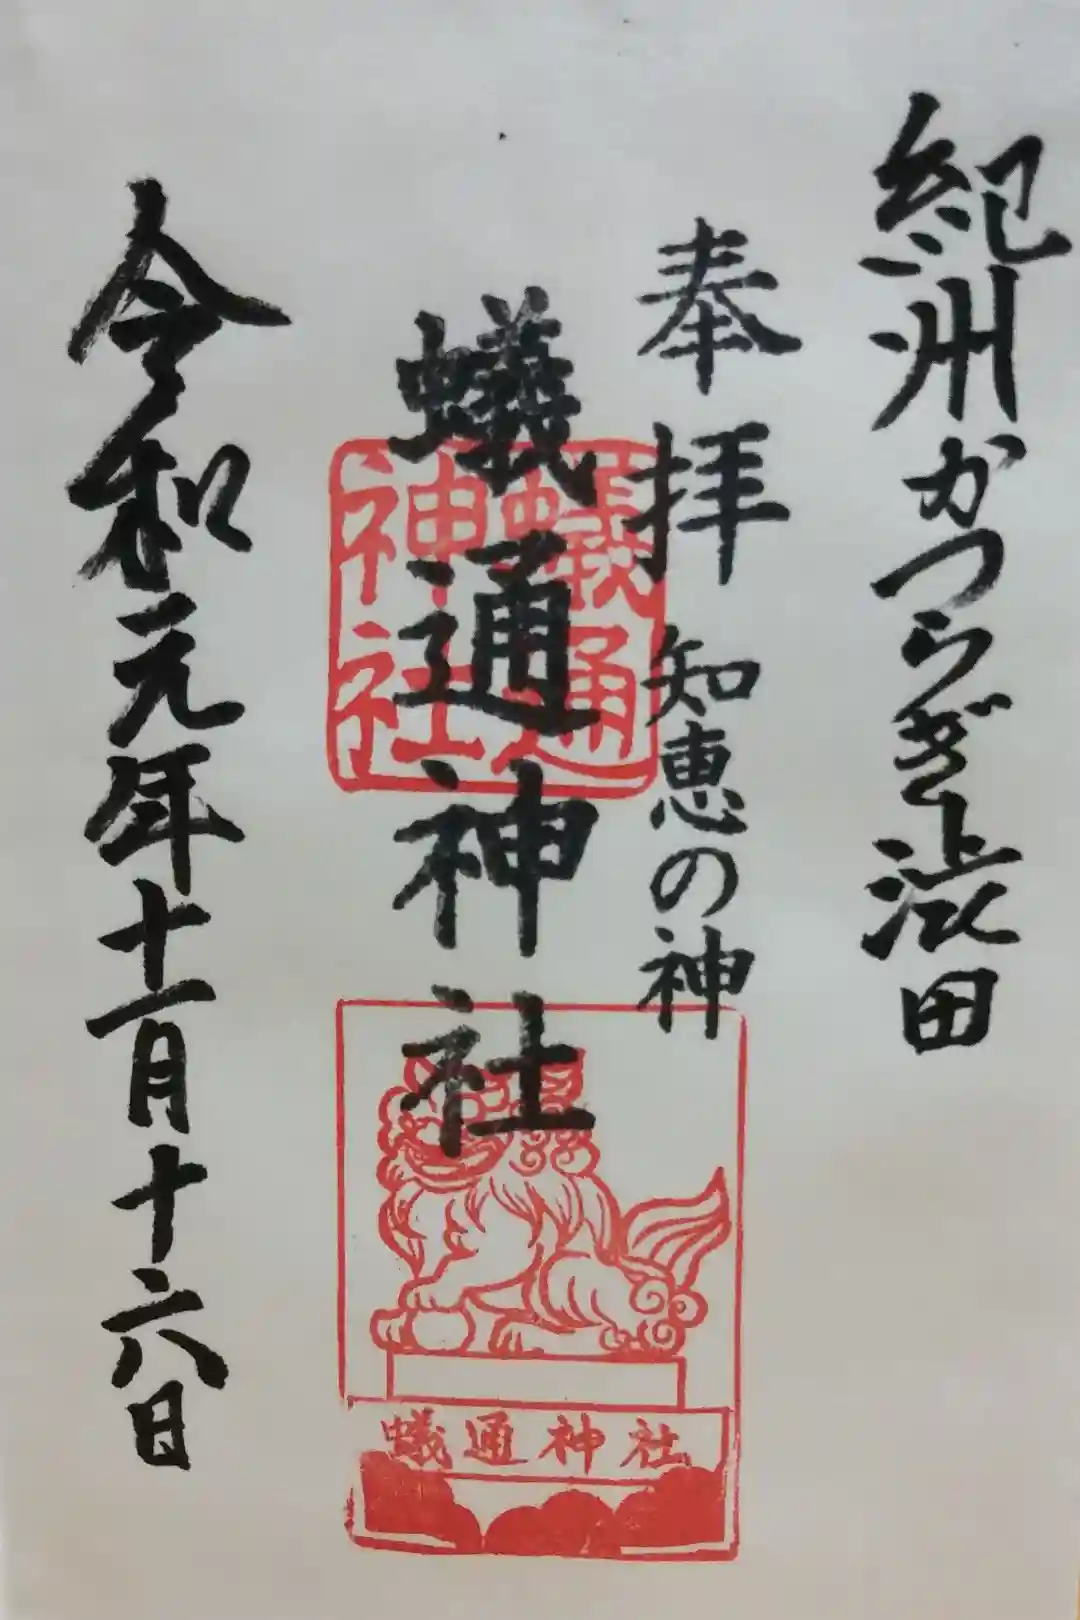 紀州かつらぎ渋田
奉拝 知恵の神
蟻通神社
蟻通
神社
蟻通神社
令和元年十一月十六日